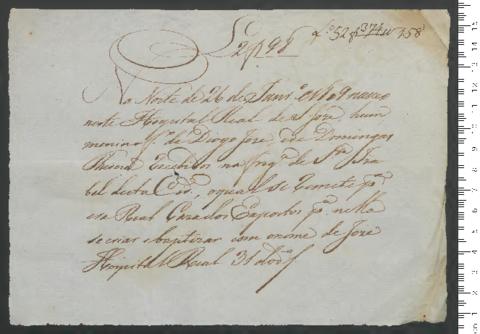 Lº 2 f 98
fº 52 f 374 nº 158
Na Noite de 26 de Janrº 1819 nasceo
neste Hospital Real de S José, hum
menino fº de Diogo José, e de Domingas
Maria Recebidos na frgª de Stª Iza
bel desta Cidᵉ o qual se Remete pª
esa Real Caza dos Expostos pª nella
se criar e baptizar com o nome de José
Hospital Real 31 do dº